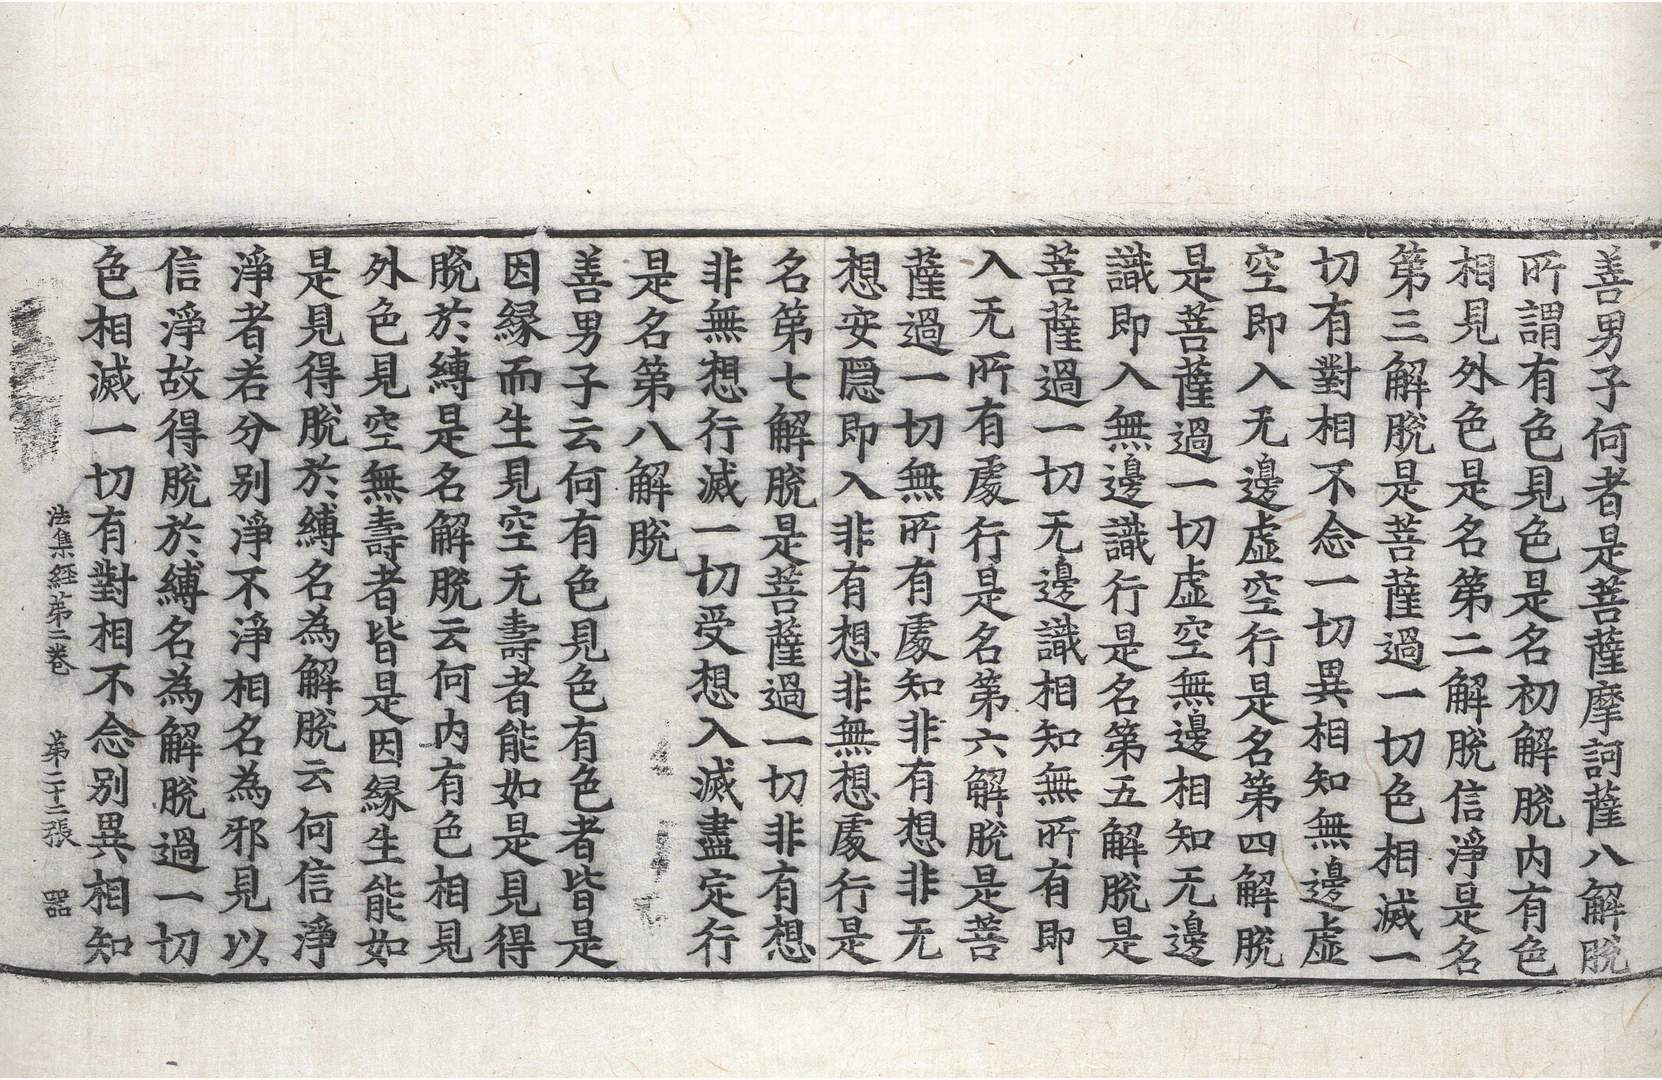 善男子何者是菩薩摩訶薩八解脫
所謂有色見色是名初解脫内有色
相見外色是名第二解脫信淨是名
第三解脫是菩薩過一切色相滅一
切有對相不念一切異相知無邊虛
空即入无邊虛空行是名第四解脫
是菩薩過一切虛空無邊相知无邊
識即入無邊識行是名第五解脫是
菩薩過一切无邊識相知無所有即
入无所有處行是名第六解脫是菩
薩過一切無所有處知非有想非无
想安隱即入非有想非無想處行是
名第七解脫是菩薩過一切非有想
非無想行滅一切受想入滅盡定行
是名第八解脫
善男子云何有色見色有色者皆是
因緣而生見空无壽者能如是見得
脫於縛是名解脫云何内有色相見
外色見空無壽者皆是因緣生能如
是見得脫於縛名為解脫云何信淨
淨者若分別淨不淨相名為邪見以
信淨故得脫於縛名為解脫過一切
色相滅一切有對相不念別異相知
法集經第二卷　第二十二張　器